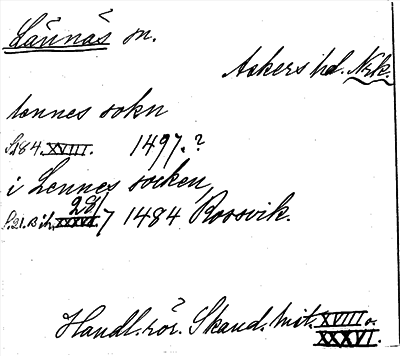 Lännäs sn.
Askers hd. Nrk.
lennes sokn
S. 184. XVIII. 1497.?
i Lennes socken,
S. 21. Bih. XXXVI. 281/7 1484 Roosvik.
Handl. rör. Skand. hist. XVIII o.
XXXVI.